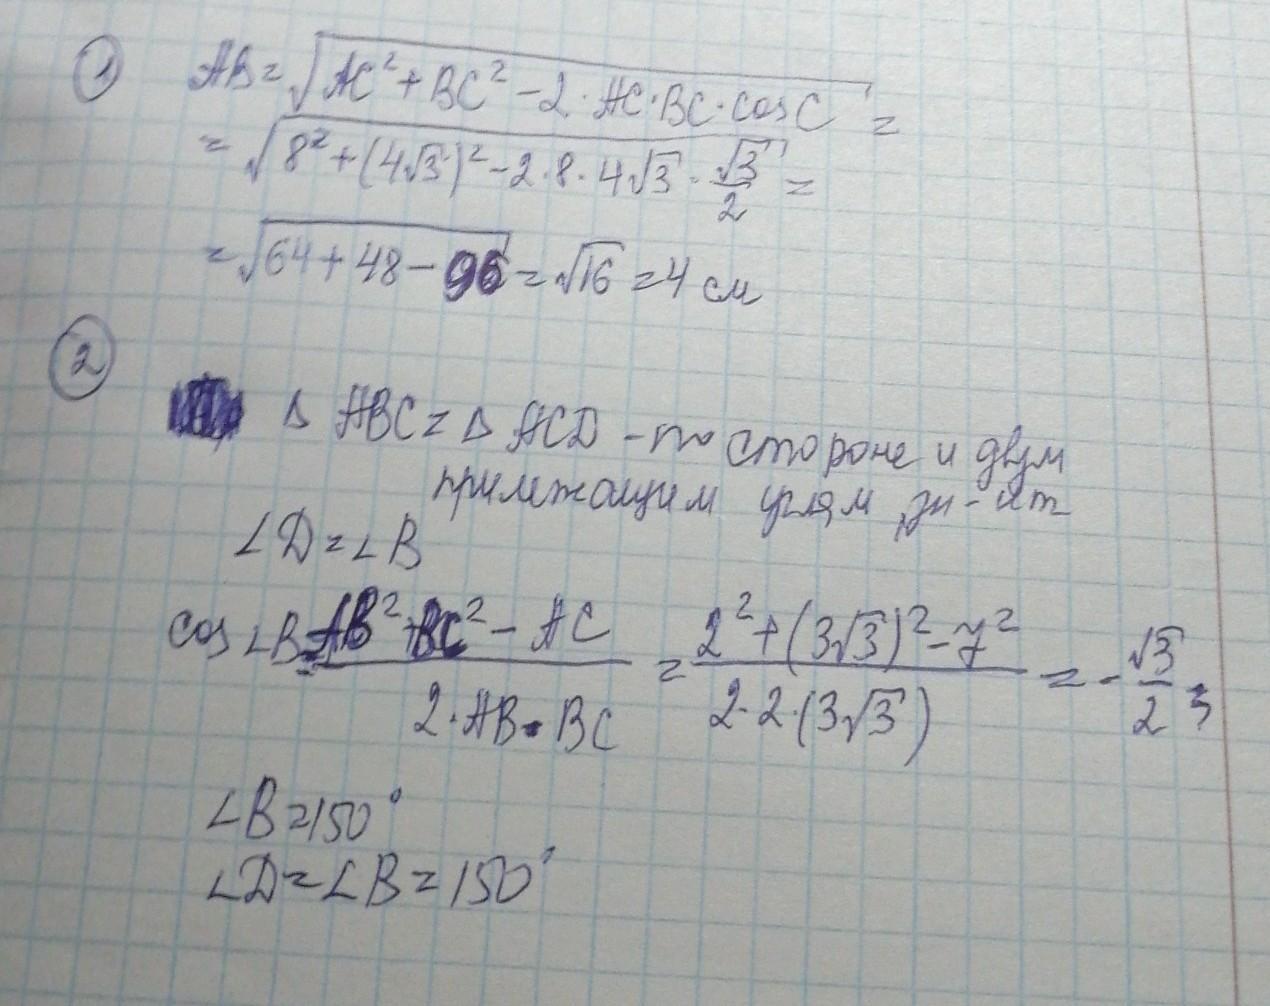 ① AB = √(AC² + BC² - 2 · AC · BC · cos C) =
= √(8² + (4√3)² - 2 · 8 · 4√3 · √3/2) =
= √(64 + 48 - 96) = √16 = 4 см
②
Δ ABC = Δ ACD - по стороне и двум
прилежащим углям,
∠D = ∠B
cos ∠B = (AB² + BC² - AC)/(2 · AB · BC) = (2² + (3√3)² - 7²)/(2 · 2 · (3√3)) = - √3/2 ;
∠B = 150°
∠D = ∠B = 150°